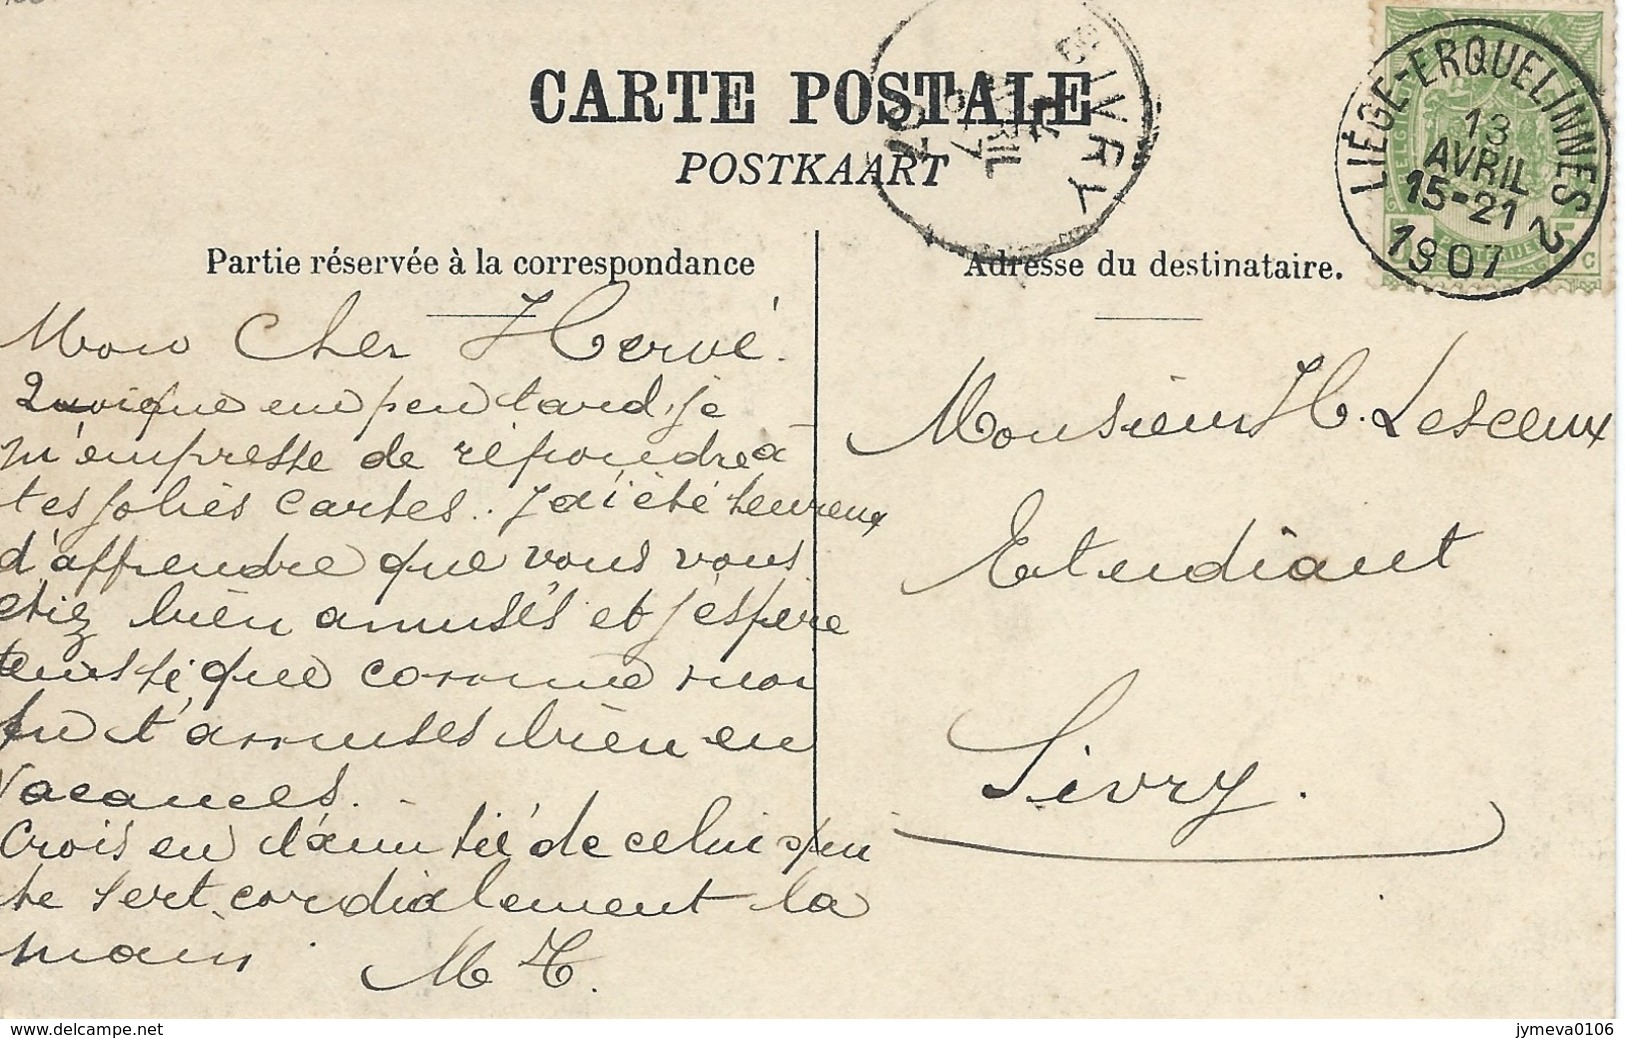 CARTE POSTALE
POSTKAART
SIVRY
AVRIL
07
LIÉGE-ERQUELINNES 2
13
AVRIL
15-21
1907
Partie réservée à la correspondance
Adresse du destinataire.
Mon Cher Hervé.
Quoique un peu tard, je
m'empresse de répondre à
tes jolies cartes. J'ai été heureux
d'apprendre que vous vous
étiez bien amusés et j'espère
aussi que comme moi
tu t'amuses bien en
vacances.
Crois en l'amitié de celui qui
te sert cordialement la
main.
M H.
Monsieur H. Lesceux
Etudiant
Sivry.
www.delcampe.net
jymeva0106